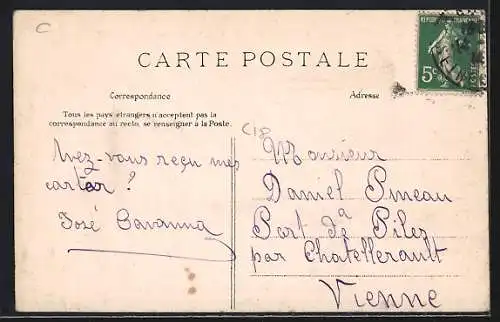 C
CARTE POSTALE
RÉPUBLIQUE FRANÇAISE
5c
POSTES
Correspondance
Adresse
Tous les pays étrangers n'acceptent pas la
correspondance au recto, se renseigner à la Poste.
C18
Avez-vous reçu mes
cartes ?
José Cavanna
Monsieur
Daniel Pineau
Port de Piles
par Chatellerault
Vienne